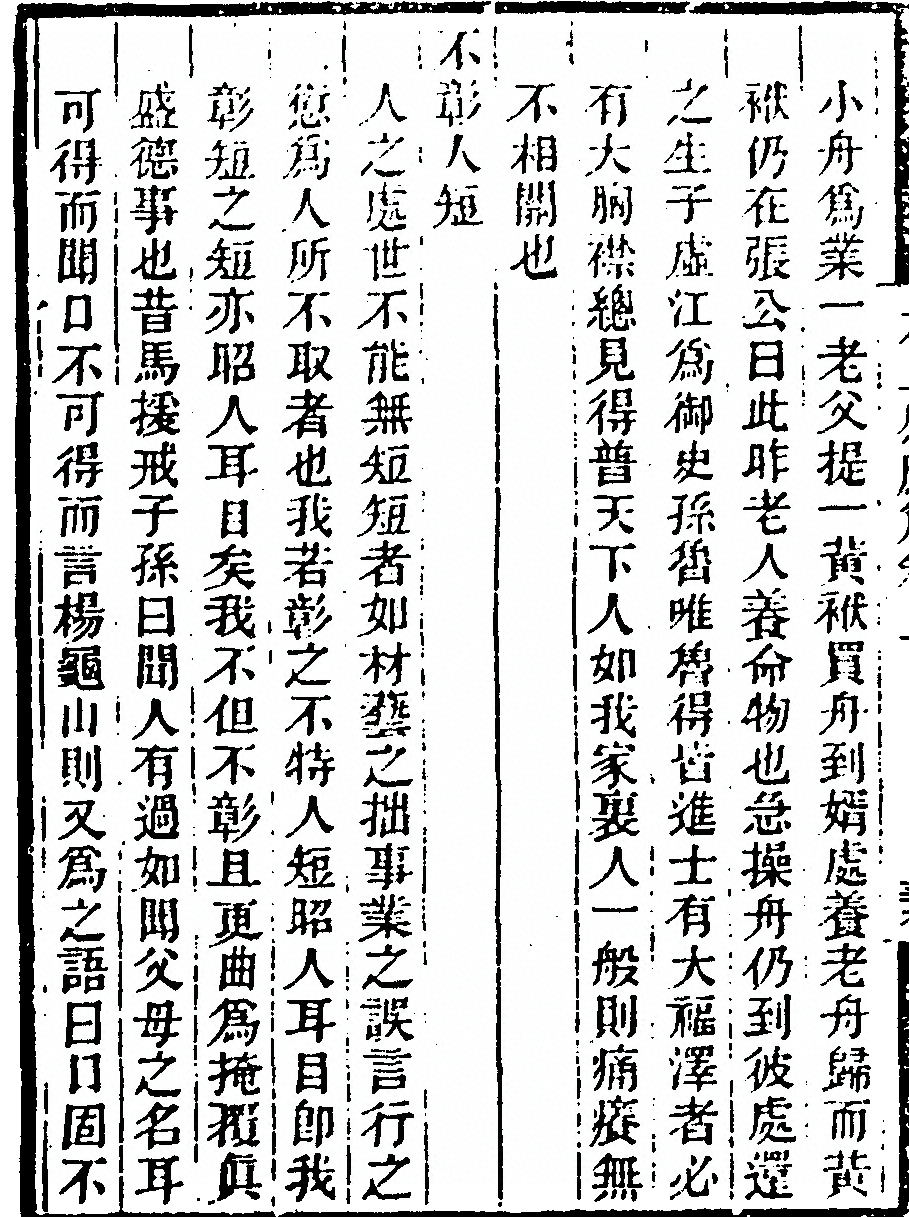 小舟爲業一老父提一黃袱買舟到婿處養老舟歸而黃
袱仍在張公曰此昨老人養命物也急操舟仍到彼處還
之生子虛江爲御史孫魯唯魯得皆進士有大福澤者必
有大胸襟總見得普天下人如我家裏人一般則痛癢無
不相關也
不彰人短
人之處世不能無短短者如材藝之拙事業之誤言行之
愆爲人所不取者也我若彰之不特人短昭人耳目卽我
彰短之短亦昭人耳目矣我不但不彰且更曲爲掩覆眞
盛德事也昔馬援戒子孫曰聞人有過如聞父母之名耳
可得而聞口不可得而言楊龜山則又爲之語曰口固不